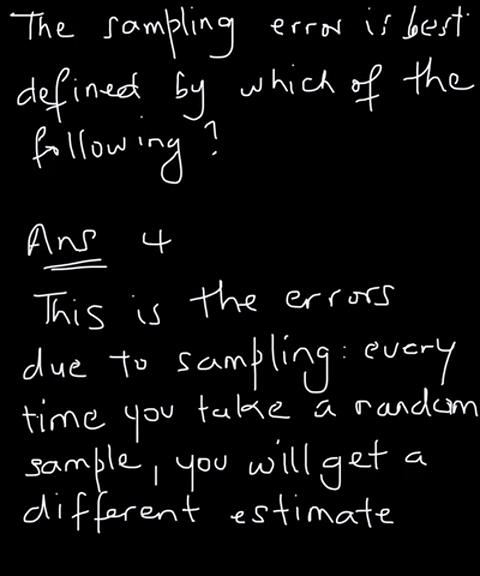 The sampling error is best
defined by which of the
following?
Ans 4
This is the errors
due to sampling: every
time you take a random
sample, you will get a
different estimate